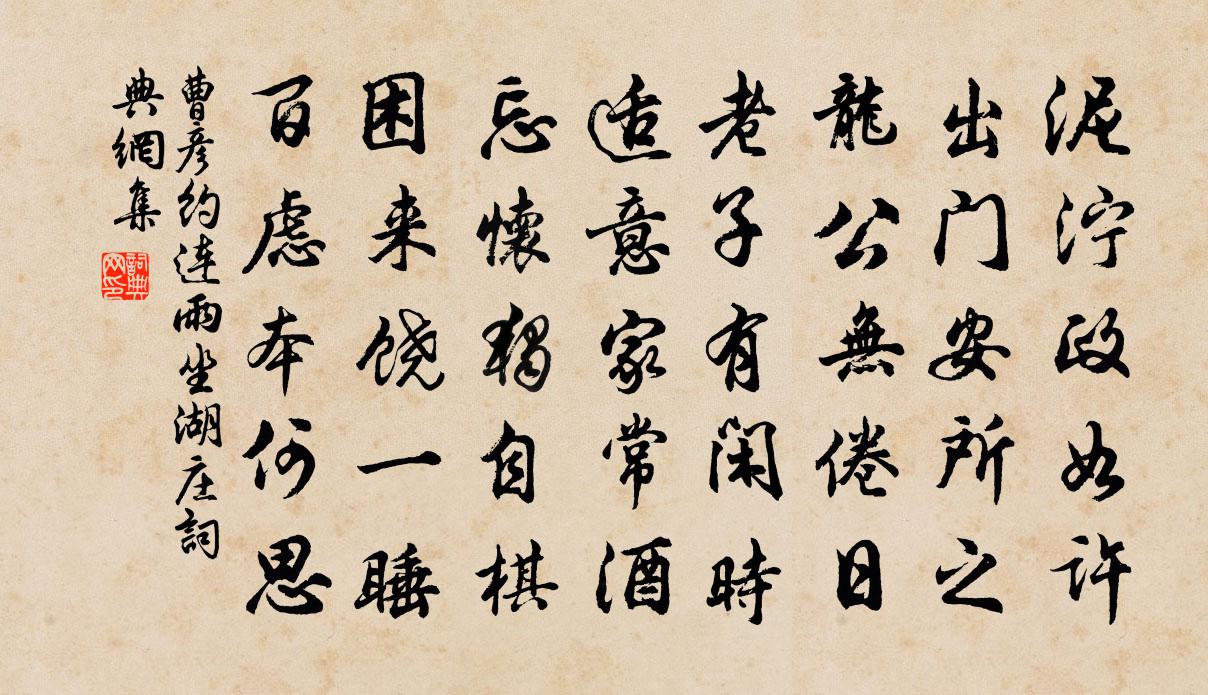 泥泞政如许
出门安所之
龍公無倦日
老子有闲時
适意家常酒
忘懷獨自棋
困来饶一睡
百虑本何思
曹彦约连雨坐湖庄詞
典網集
詞典
网印